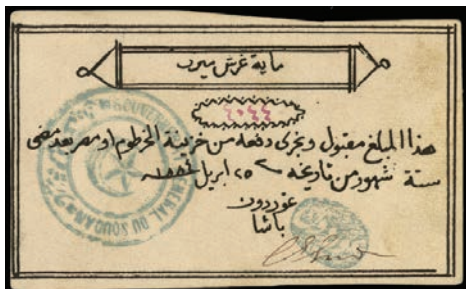 ماية غرش ميرى
٤٠٤٤
هذا المبلغ مقبول وتجرى دفعه من خزينة الخرطوم او مصر بعد مضى
ستة شهور من تاريخه ٢٥ ابريل ١٨٨٤
غوردون
باشا
GOUVERNEUR GENERAL DU SOUDAN